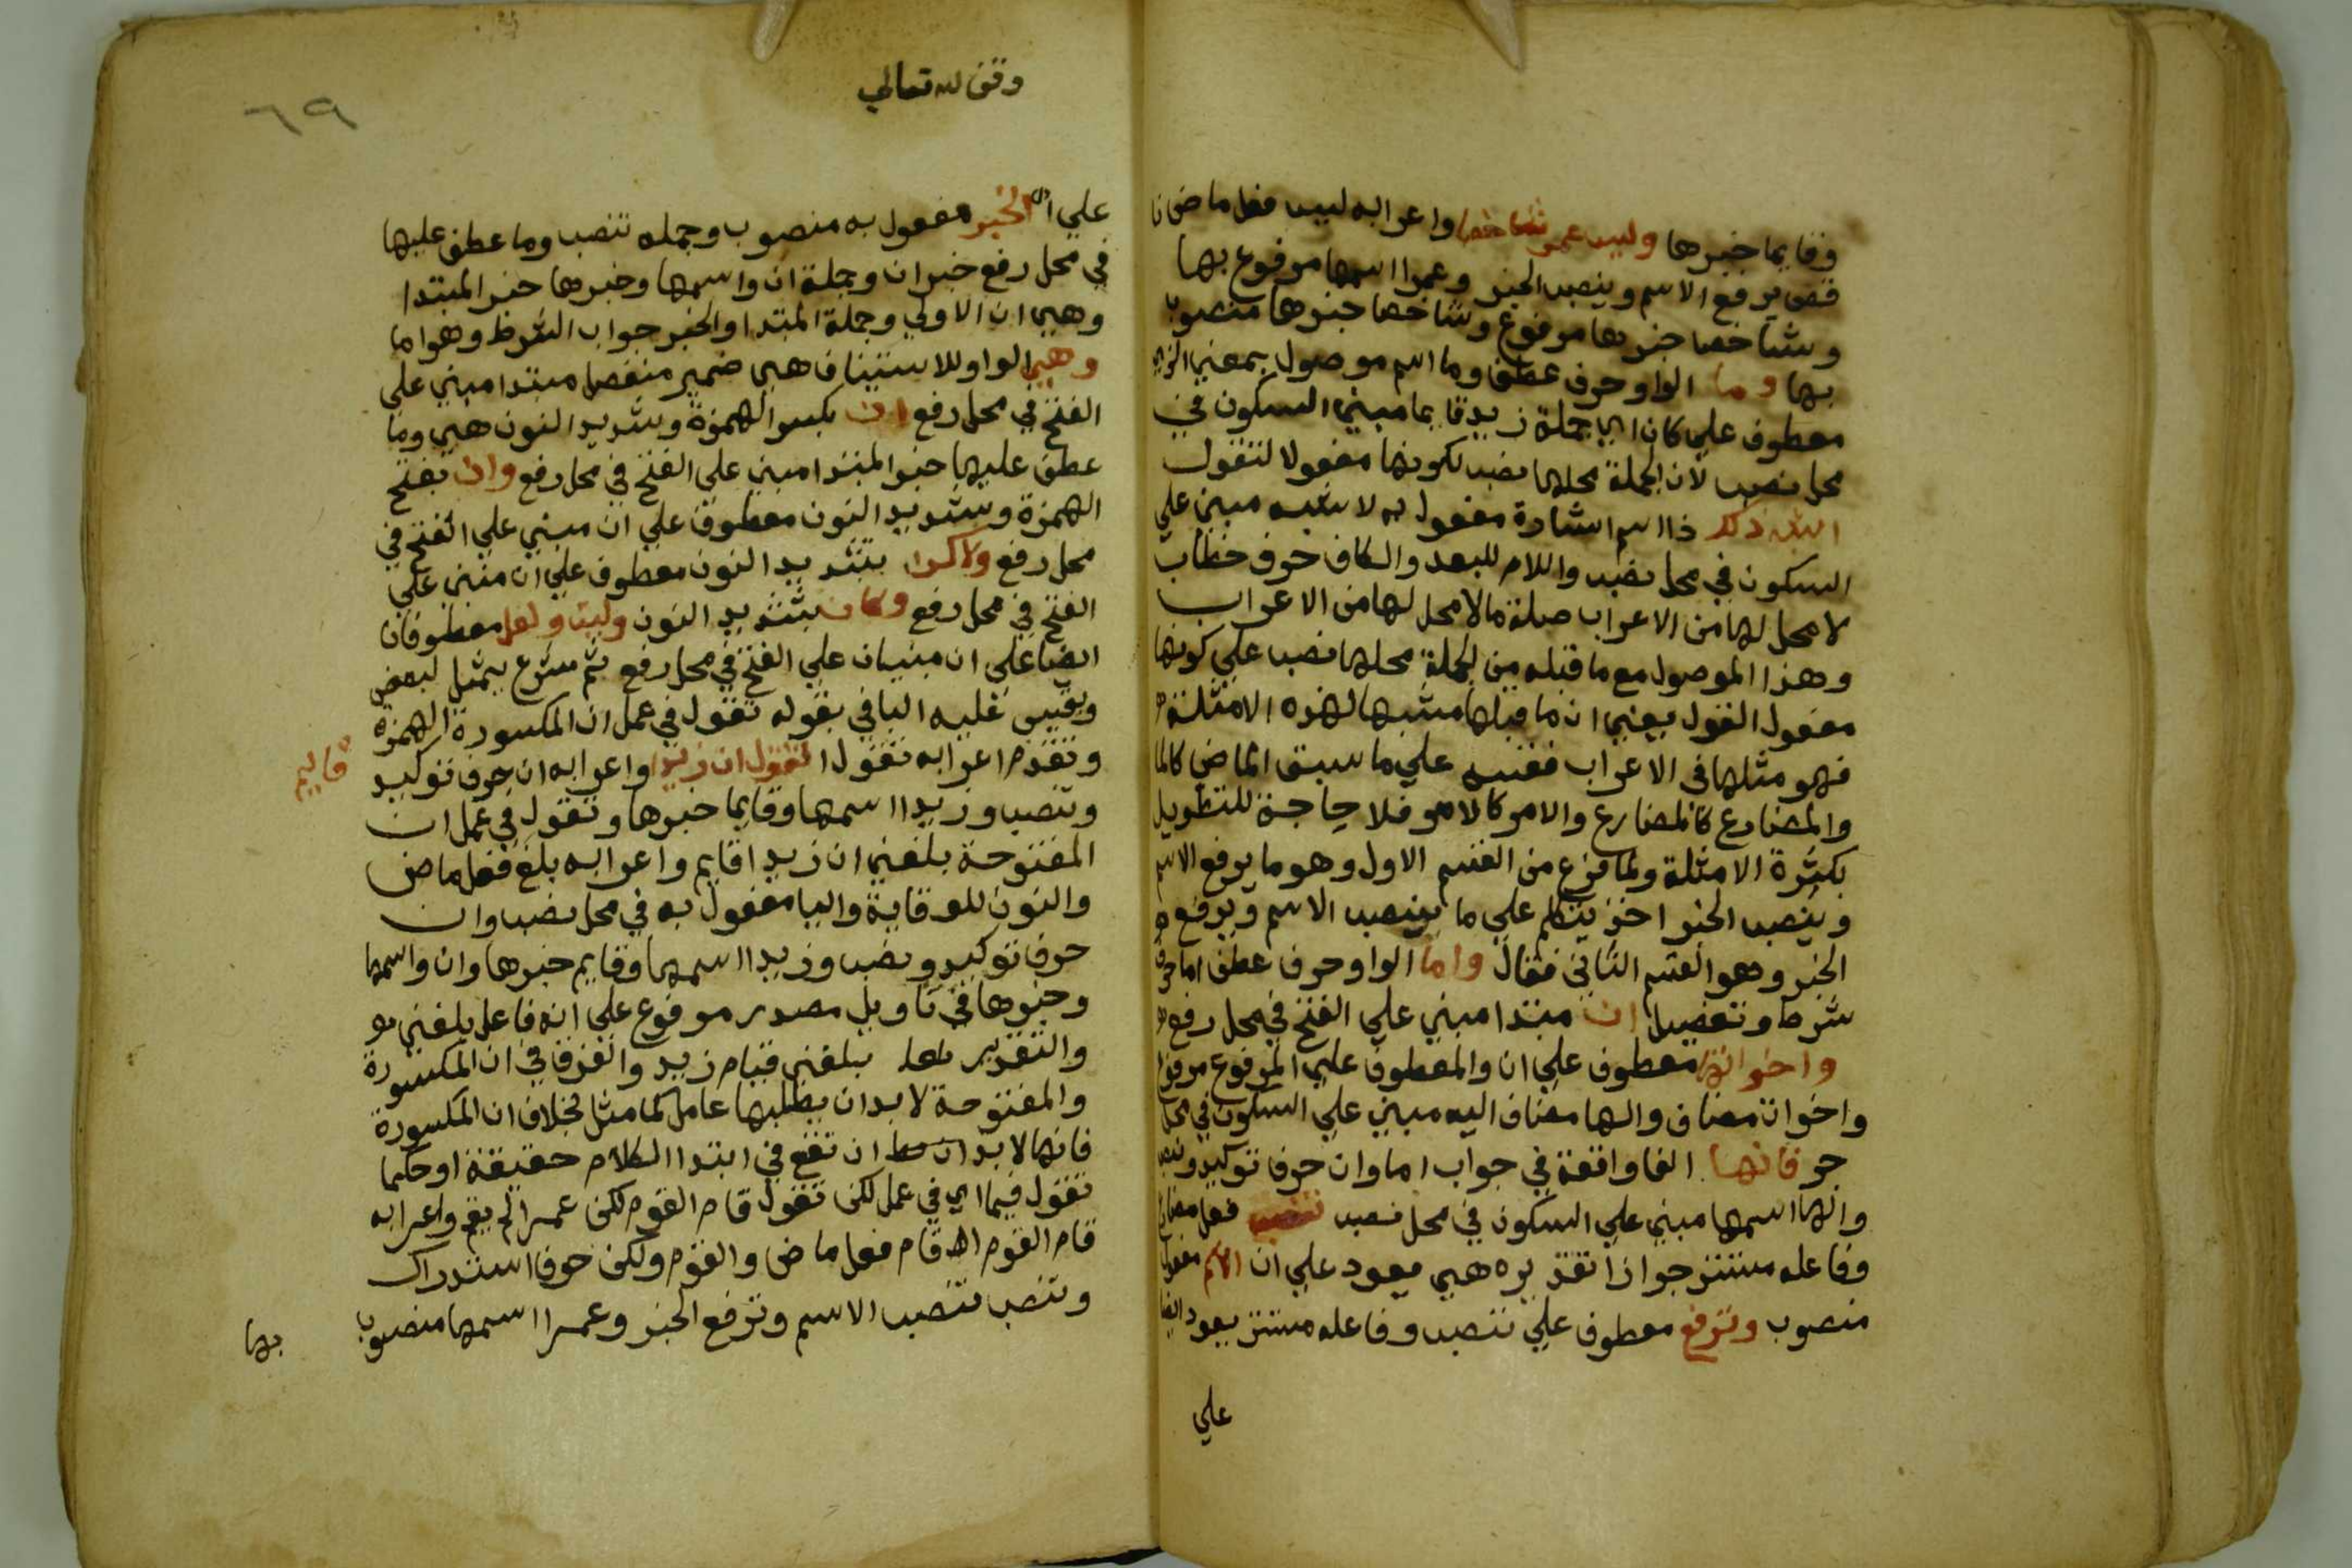 وقايما خبرها وليس عمر شاخصا واعرابه ليس فعل ماض نا
قص يرفع الاسم وينصب الخبر وعمرا اسمها مرفوع بها
وشاخصا خبرها مرفوع وشاخصا خبرها منصوب
بها وما الواو حرف عطف وما اسم موصول بمعني الذي
معطوف علي كان اي جملة زيد قايما مبني السكون في
محل نصب لان الجملة محلها نصب لكونها مفعولا لتقول
اشبه ذلك ذا اسم اشارة مفعول به لا شبه مبني علي
السكون في محل نصب واللام للبعد والكاف حرف خطاب
لا محل لها من الاعراب صلة ما لا محل لها من الاعراب
وهذا الموصول مع ما قبله من الجملة محلها نصب علي كونها
مفعول القول يعني ان ما قبلها مشبها لهذه الامثلة
فهو مثلها في الاعراب فقس علي ما سبق الماضي كالما
والمضارع كالمضارع والامر كالامر فلا حاجة للتطويل
بكثرة الامثلة ولما فرغ من القسم الاول وهو ما يرفع الاسم
وينصب الخبر اخذ يتكلم علي ما ينصب الاسم ويرفع
الخبر وهو القسم الثاني فقال واما الواو حرف عطف اما حرف
شرط وتفصيل ان مبتدا مبني علي الفتح في محل رفع
واخواتها معطوف علي ان والمعطوف علي المرفوع مرفوع
واخوات مضاف والها مضاف اليه مبني علي السكون في محل
جر فانها الفا واقعة في جواب اما وان حرف توكيد ونصب
والها اسمها مبني علي السكون في محل نصب تنصب فعل مضارع
وفاعله مستتر جوازا تقديره هي يعود علي ان الاسم مفعول
منصوب وترفع معطوف علي تنصب وفاعله مستتر يعود ايضا
علي
وقف لله تعالي
٦٩
علي ان الخبر مفعول به منصوب وجمله تنصب وما عطف عليها
في محل رفع خبر ان وجملة ان واسمها وخبرها خبر المبتدا
وهي ان الاولي وجملة المبتدا والخبر جواب الشرط وهو اما
وهي الواو للاستيناف هي ضمير منفصل مبتدا مبني علي
الفتح في محل رفع ان بكسر الهمزة وتشديد النون هي وما
عطف عليها خبر المبتدا مبني علي الفتح في محل رفع وان بفتح
الهمزة وتشديد النون معطوف علي ان مبني علي الفتح في
محل رفع ولاكن بتشديد النون معطوف علي ان مبني علي
الفتح في محل رفع وكان بتشديد النون وليت ولعل معطوفان
ايضا علي ان مبنيان علي الفتح في محل رفع ثم شرع يمثل لبعض
ويقيس عليه الباقي بقوله تقول في عمل ان المكسورة الهمزة
وتقدم اعرابه تقول ان زيدا واعرابه ان حرف توكيد
قايم
وتنصب وزيدا اسمها وقايما خبرها وتقول في عمل ان
المفتوحة بلغني ان زيدا قايم واعرابه بلغ فعل ماض
والنون للوقاية واليا مفعول به في محل نصب وان
حرف توكيد ونصب وزيدا اسمها وقايم خبرها وان واسمها
وخبرها في تاويل مصدر مرفوع علي انه فاعل بلغني
والتقدير بلغني قيام زيد والفرق في ان المكسورة
والمفتوحة لا بد ان يطلبها عامل كما مثل بخلاف ان المكسورة
فانها لا بد ان تقع في ابتدا الكلام حقيقة او حكما
تقول فيما اي في عمل لكن تقول قام القوم لكن عمرا لم يقم واعرابه
قام القوم قام فعل ماض والقوم ولكن حرف استدراك
وتنصب تنصب الاسم وترفع الخبر وعمرا اسمها منصوب
بها